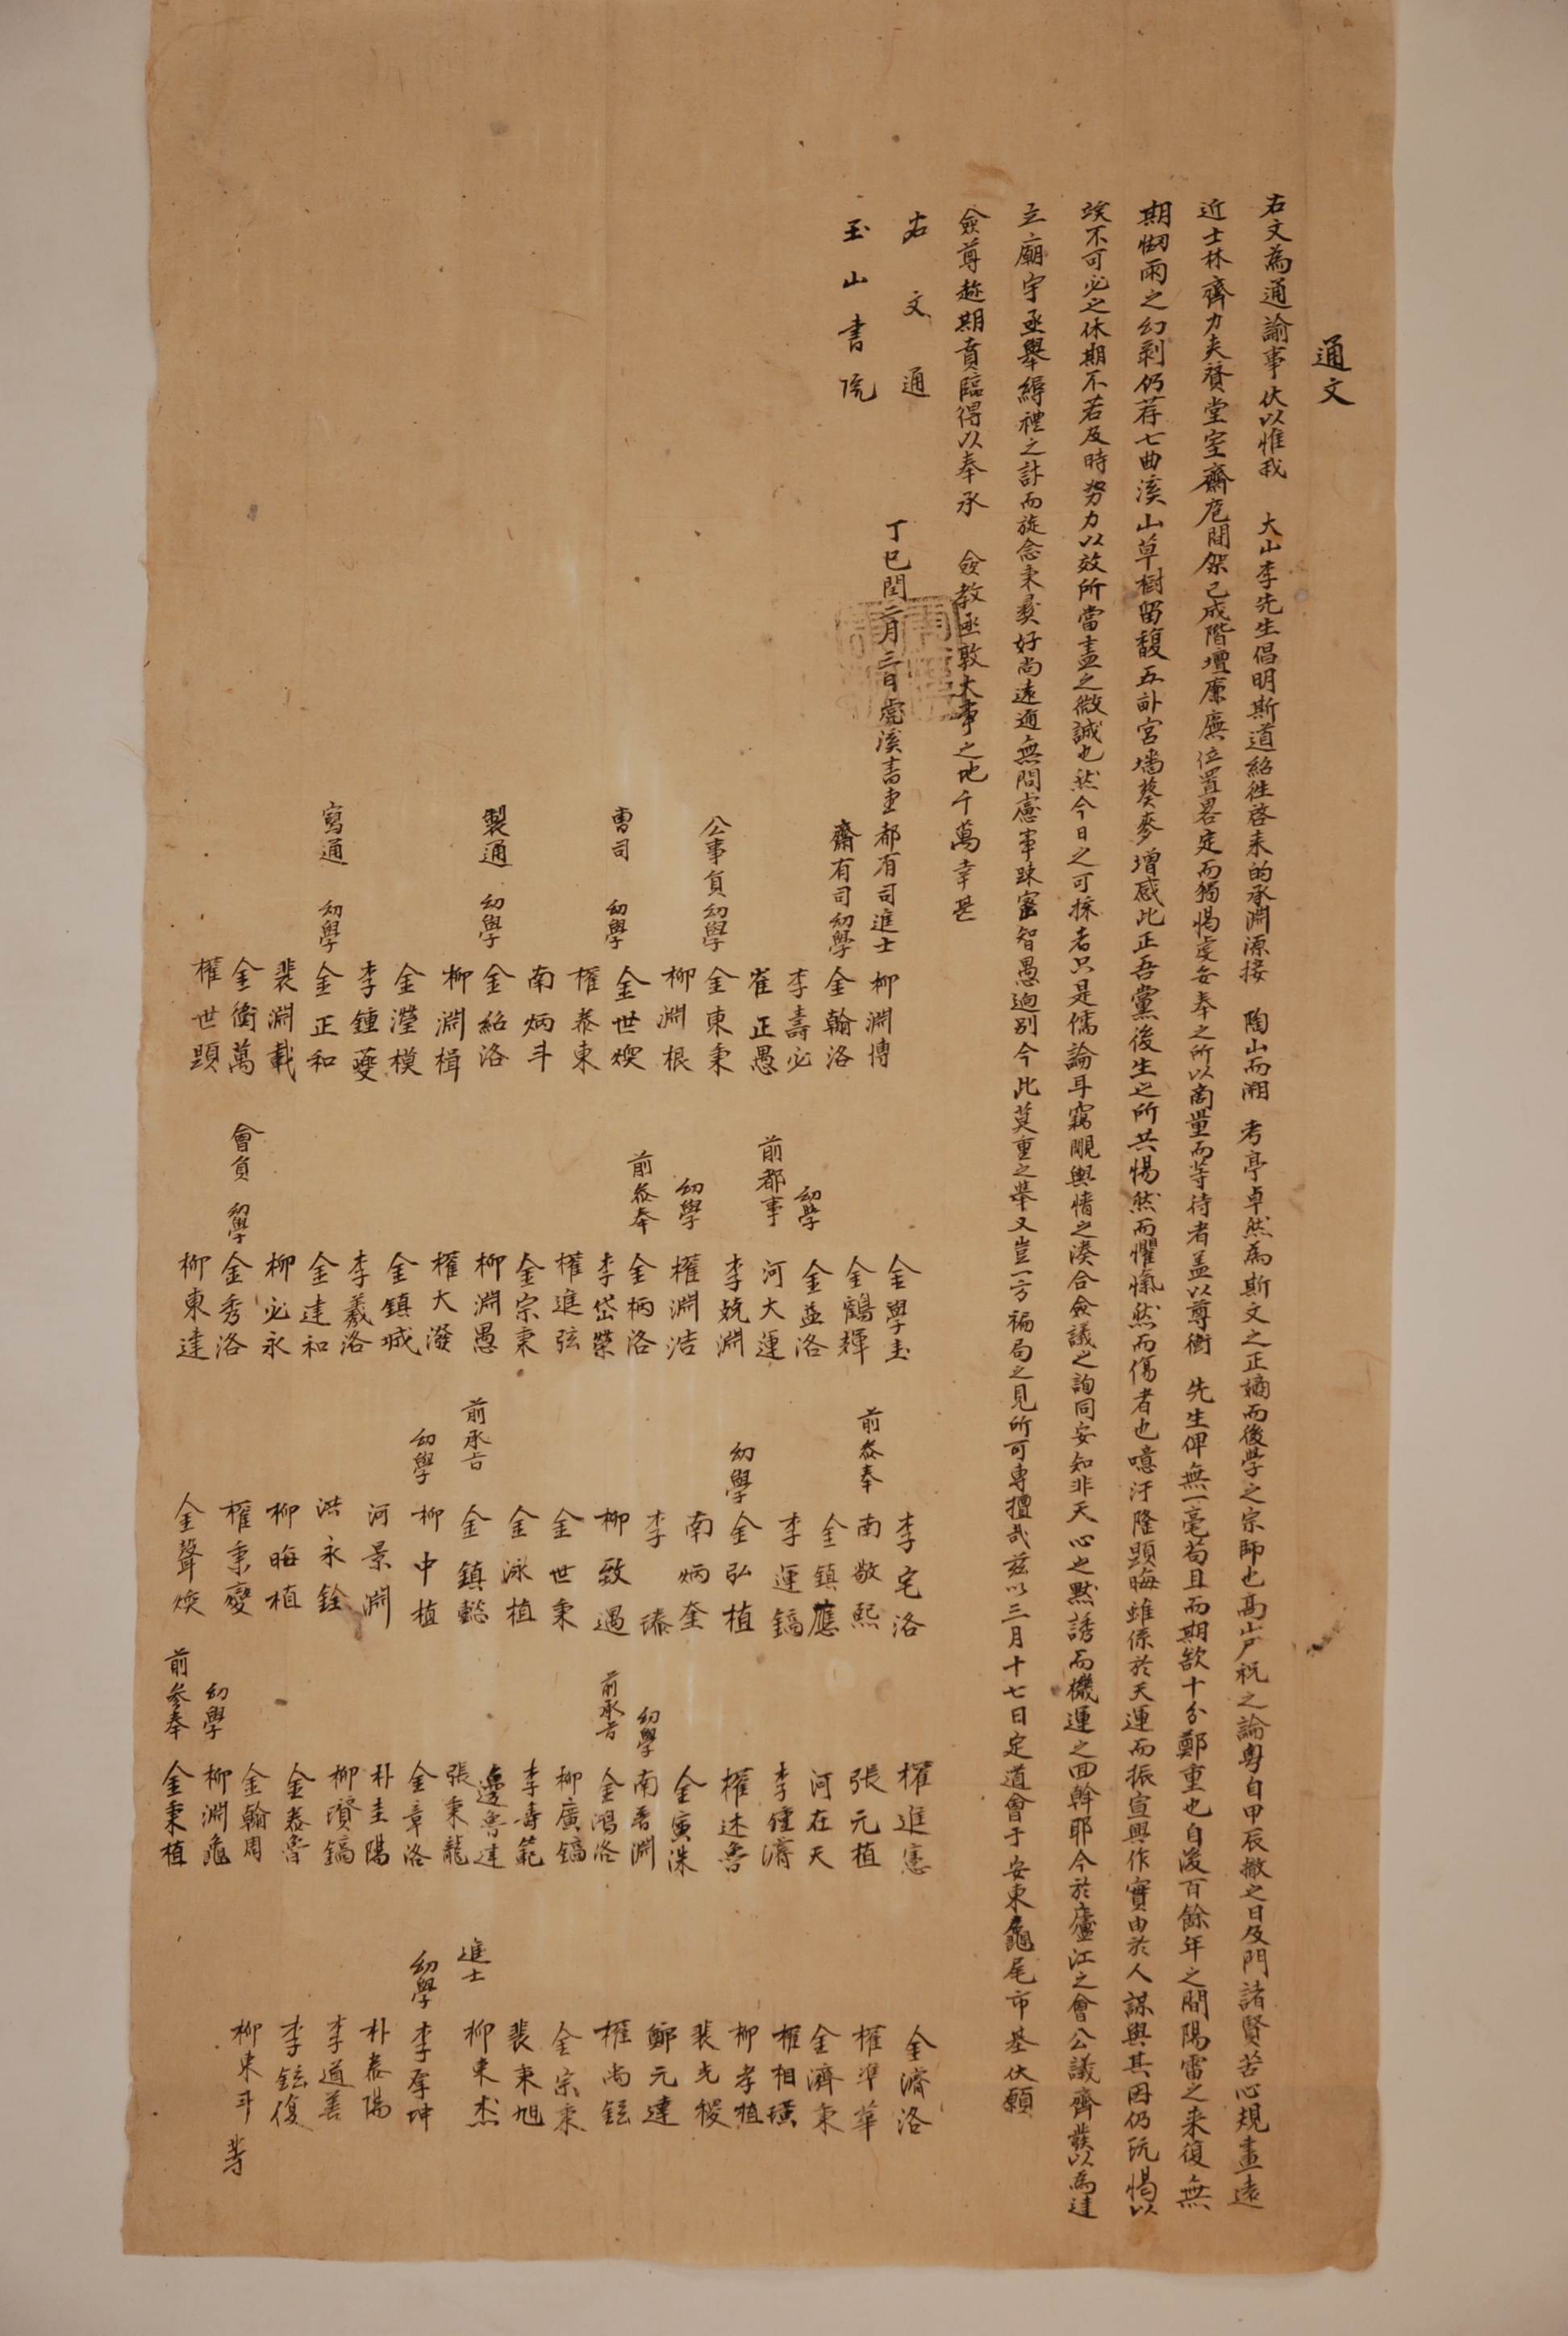 通文
右文爲通諭事伏以惟我 大山李先生倡明斯道紹徃啓來的承淵源接 陶山而溯 考亭卓然爲斯文之正嫡而後學之宗師也高山尸祝之論粤自甲辰撤之日及門諸賢苦心規畫遠
近士林齊力夾贊堂室齋庖間架已成階壇廉廡位置畧定而獨愒虔妥奉之所以商量而等待者盖以尊衛 先生俾無一毫苟且而期欲十分鄭重也自後百餘年之間陽雷之来復無
期 雨之幻剥仍荐七曲溪山草樹留馥五畝宮墻葵麥增感此正吾黨後生之所共惕然而懼愾然而傷者也噫汙隆顯晦雖係於天運而振宣興作實由於人謀與其因仍玩愒以
竢不可必之休期不若及時努力以效所當盡之微誠也然今日之可採者只是儒論耳竊覸輿情之湊合僉議之詢同安知非天心之默誘而機運之回斡耶今於廬江之會公議齊發以爲建
立廟宇亟擧縟禮之計而旋念秉彛好尚遠邇無間慮事踈密智愚逈別今此莫重之擧又豈一方褊局之見所可專擅哉玆以三月十七日定道會于 安東龜尾市基伏願
僉尊趂期賁臨得以奉承 僉教亟敦大事之地千萬幸甚
右文通
玉山書院
丁巳閏二月三日虎溪書堂都有司進士 柳淵博
齋有司幼學 金翰洛
李壽必
崔正愚
公事員幼學 金東秉
柳淵根
曺司 幼學 金世煥
權泰東
南炳斗
製通 幼學 金紹洛
柳淵楫
金瀅模
李鍾夔
寫通 幼學 金正和
裴淵載
金衡萬
權世顯
金學圭
金鶴輝
幼學 金益洛
前都事 河大運
李兢淵
幼學 權淵浩
前參奉 金柄洛
李岱榮
權進弦
金宗秉
柳淵愚
權大潑
金鎮城
李羲洛
金達和
柳必永
會員 幼學 金秀洛
柳東達
李宅洛
前參奉 南敬熙
金鎮應
李運鎬
幼學 金弘植
南炳奎
李 瑧
柳致遇
金世秉
金泳植
前承旨 金鎮懿
幼學 柳中植
河景淵
洪永銓
柳晦植
權秉燮
金聲煥
權進憲
張元植
河在天
李鍾濟
權述魯
金寅洙
幼學 南晋淵
前承旨 金鴻洛
柳廣鎬
李壽範
邊魯達
張秉龍
金章洛
朴圭陽
柳贇鎬
金泰魯
金翰周
幼學 柳淵龜
前參奉 金秉植
金濟洛
權準華
金濟東
權相璜
柳孝植
裴光稷
鄭元達
權尚鉉
金宗秉
裴東旭
進士 柳東杰
幼學 李厚坤
朴泰陽
李道善
李鉉復
柳東斗 等